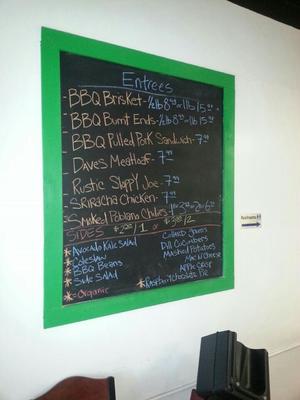 Entrees
- BBQ Brisket - ½ lb 8.49 or 1 lb 15.
- BBQ Burnt Ends - ½ lb 8.49 or 1 lb 15.
- BBQ Pulled Pork Sandwich - 7.99
- Daves Meatloaf - 7.99
- Rustic Sloppy Joe - 7.99
- Sriracha Chicken - 7.99
- Smoked Poblano Chiles
SIDES /1 or /2
* Avocado Kale Salad
* Coleslaw
* BBQ Beans
* Side Salad
* = Organic
Collard Greens
Dill Cucumbers
Mashed Potatoes
Mac n Cheese
Apple Crisp
* Raspberry Chocolate Pie
Restrooms